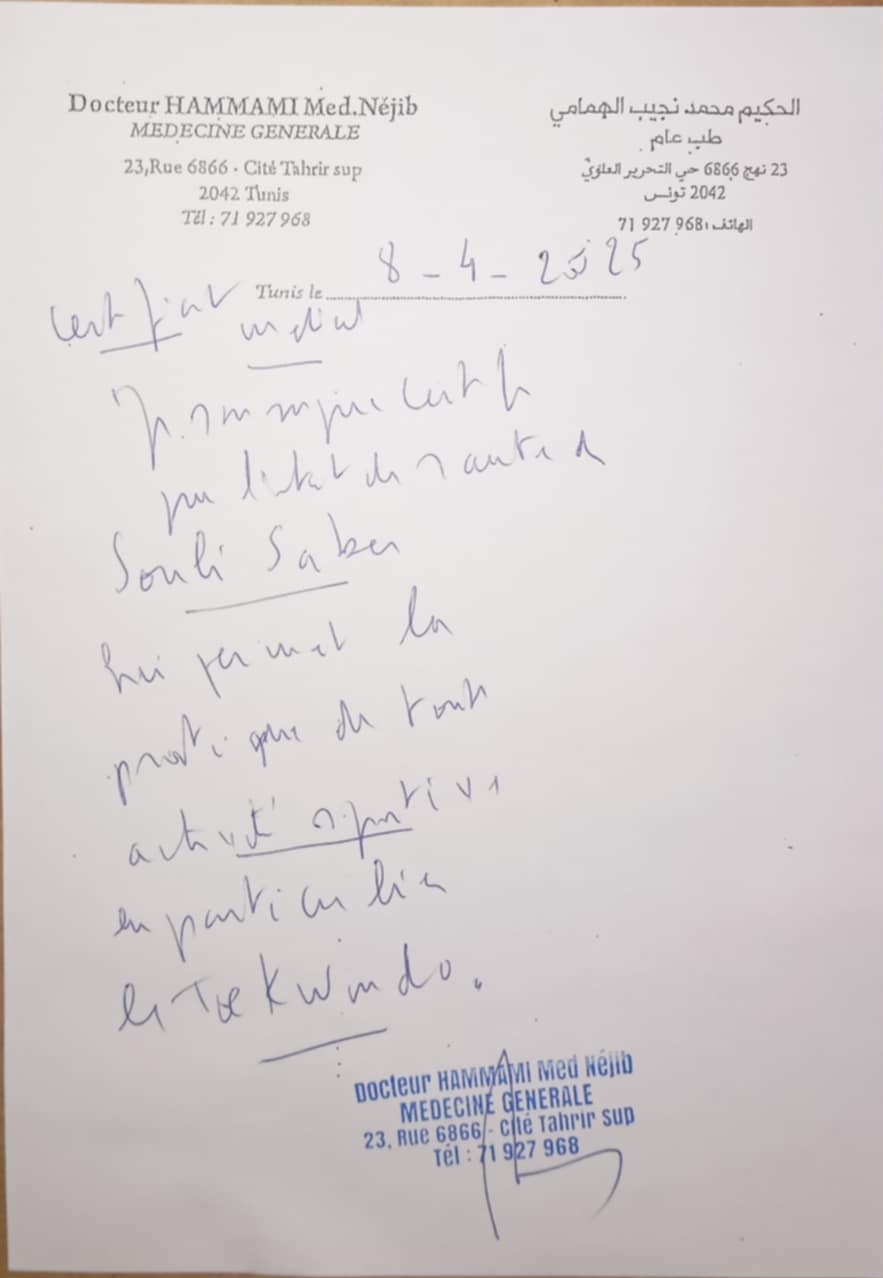 Docteur HAMMAMI Med.Néjib
MEDECINE GENERALE
23,Rue 6866 - Cité Tahrir sup
2042 Tunis
Tél : 71 927 968
الحكيم محمد نجيب الهمامي
طب عام
23 نهج 6866 حي التحرير العلوي
2042 تونس
الهاتف : 71 927 968
Tunis le 8 - 4 - 2025
Certificat médical
Je soussigné certifie
que l'état de santé de
Souli Saber
lui permet la
pratique de toute
activité sportive
en particulier
le Taekwondo.
Docteur HAMMAMI Med Néjib
MEDECINE GENERALE
23, Rue 6866 - Cité Tahrir Sup
Tél : 71 927 968